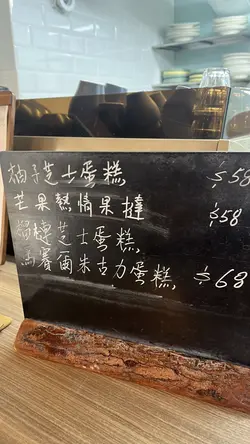 柚子芝士蛋糕 $58
芒果熱情果撻 $58
芝士蛋糕
馬賽爾朱古力蛋糕 $68